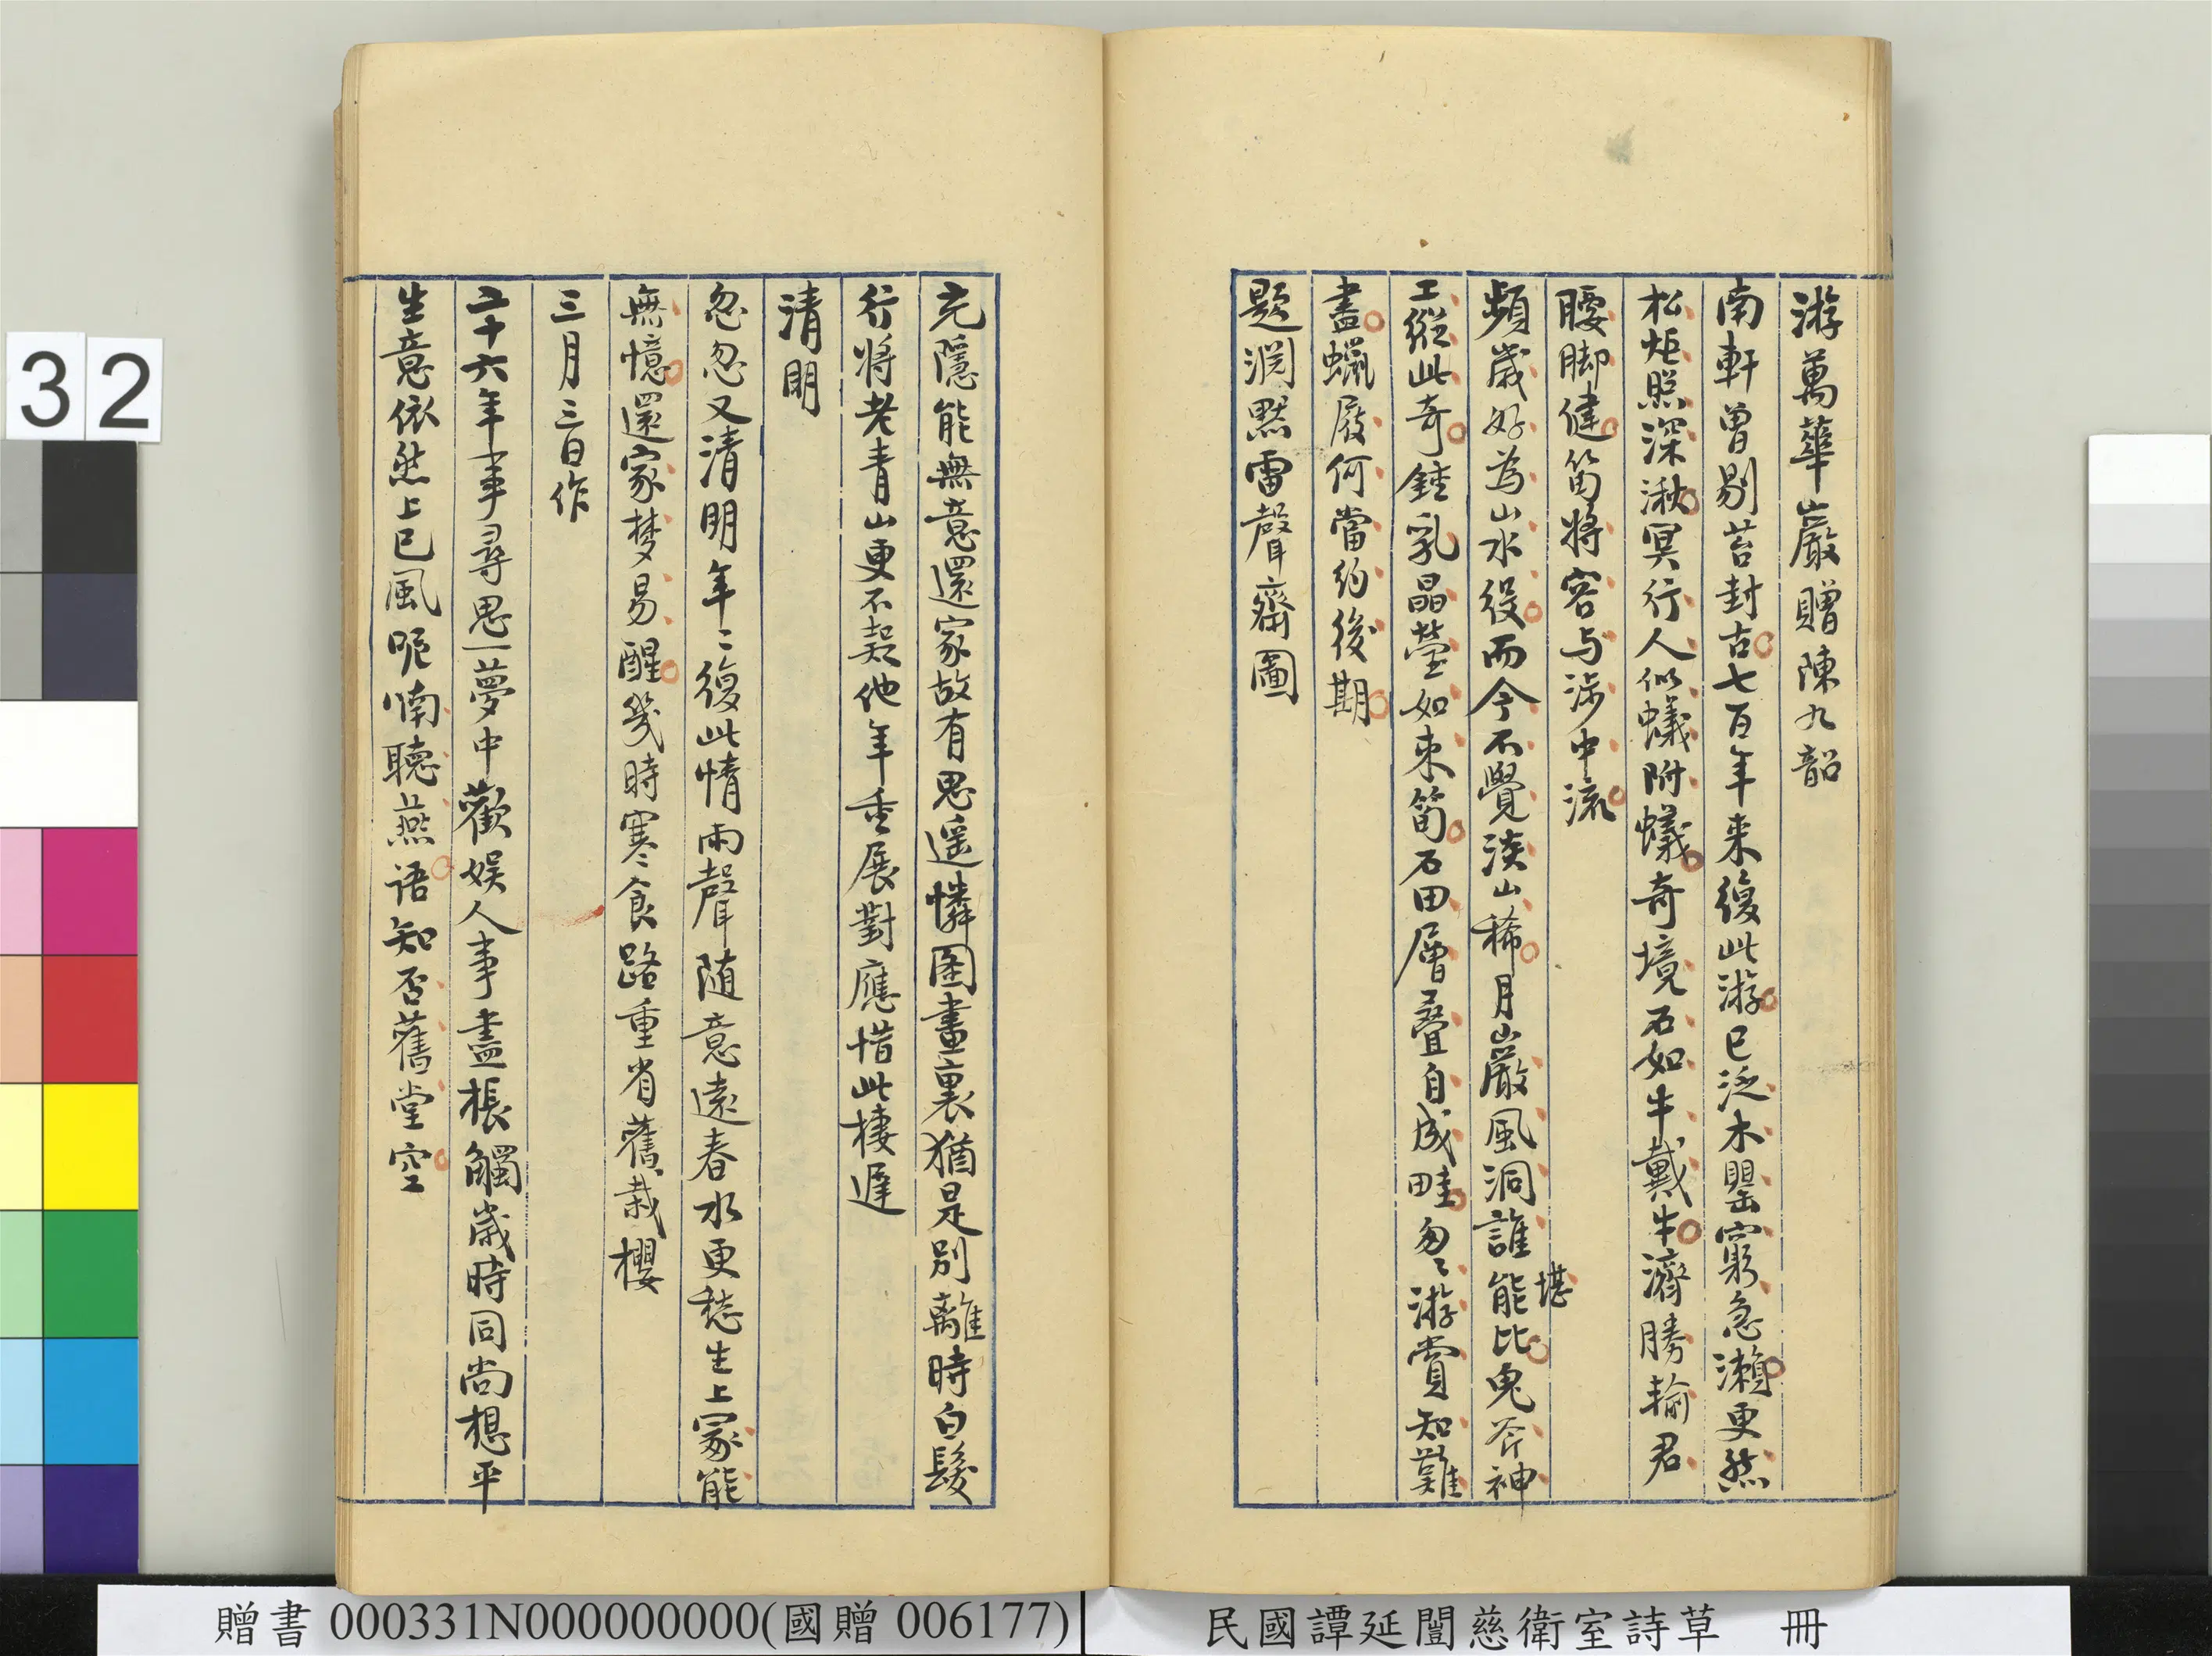 游萬華巖贈陳九韶
南軒曾剔苔封古七百年来復此游已泛木罌窮急瀨更然
松炬照深湫冥行人似蟻附蟻奇境石如牛戴牛濟勝輸君
腰脚健笻將容与涉中流
頻歲好為山水役而今不覺湊山稀月巖風洞誰能比鬼斧神
堪
工縱此奇鍾乳晶瑩如束筍石田層疊自成畦匆匆游賞知難
盡蠟屐何當約後期
題淵默雷聲齋圖
充隱能無意還家故有思遥憐圖畫裏猶是别離時白髮
行將老青山更不起他年重展對應惜此棲遲
清明
忽忽又清明年〻復此情雨聲随意遠春水更愁生上冢能
無憶還家梦易醒幾時寒食路重省舊栽櫻
三月三日作
二十六年事尋思一夢中歡娱人事盡棖觸歲時同尚想平
生意依然上巳風呢喃聽燕语知否舊堂空
32
贈書 000331N000000000(國贈 006177)
民國譚延闓慈衛室詩草 冊